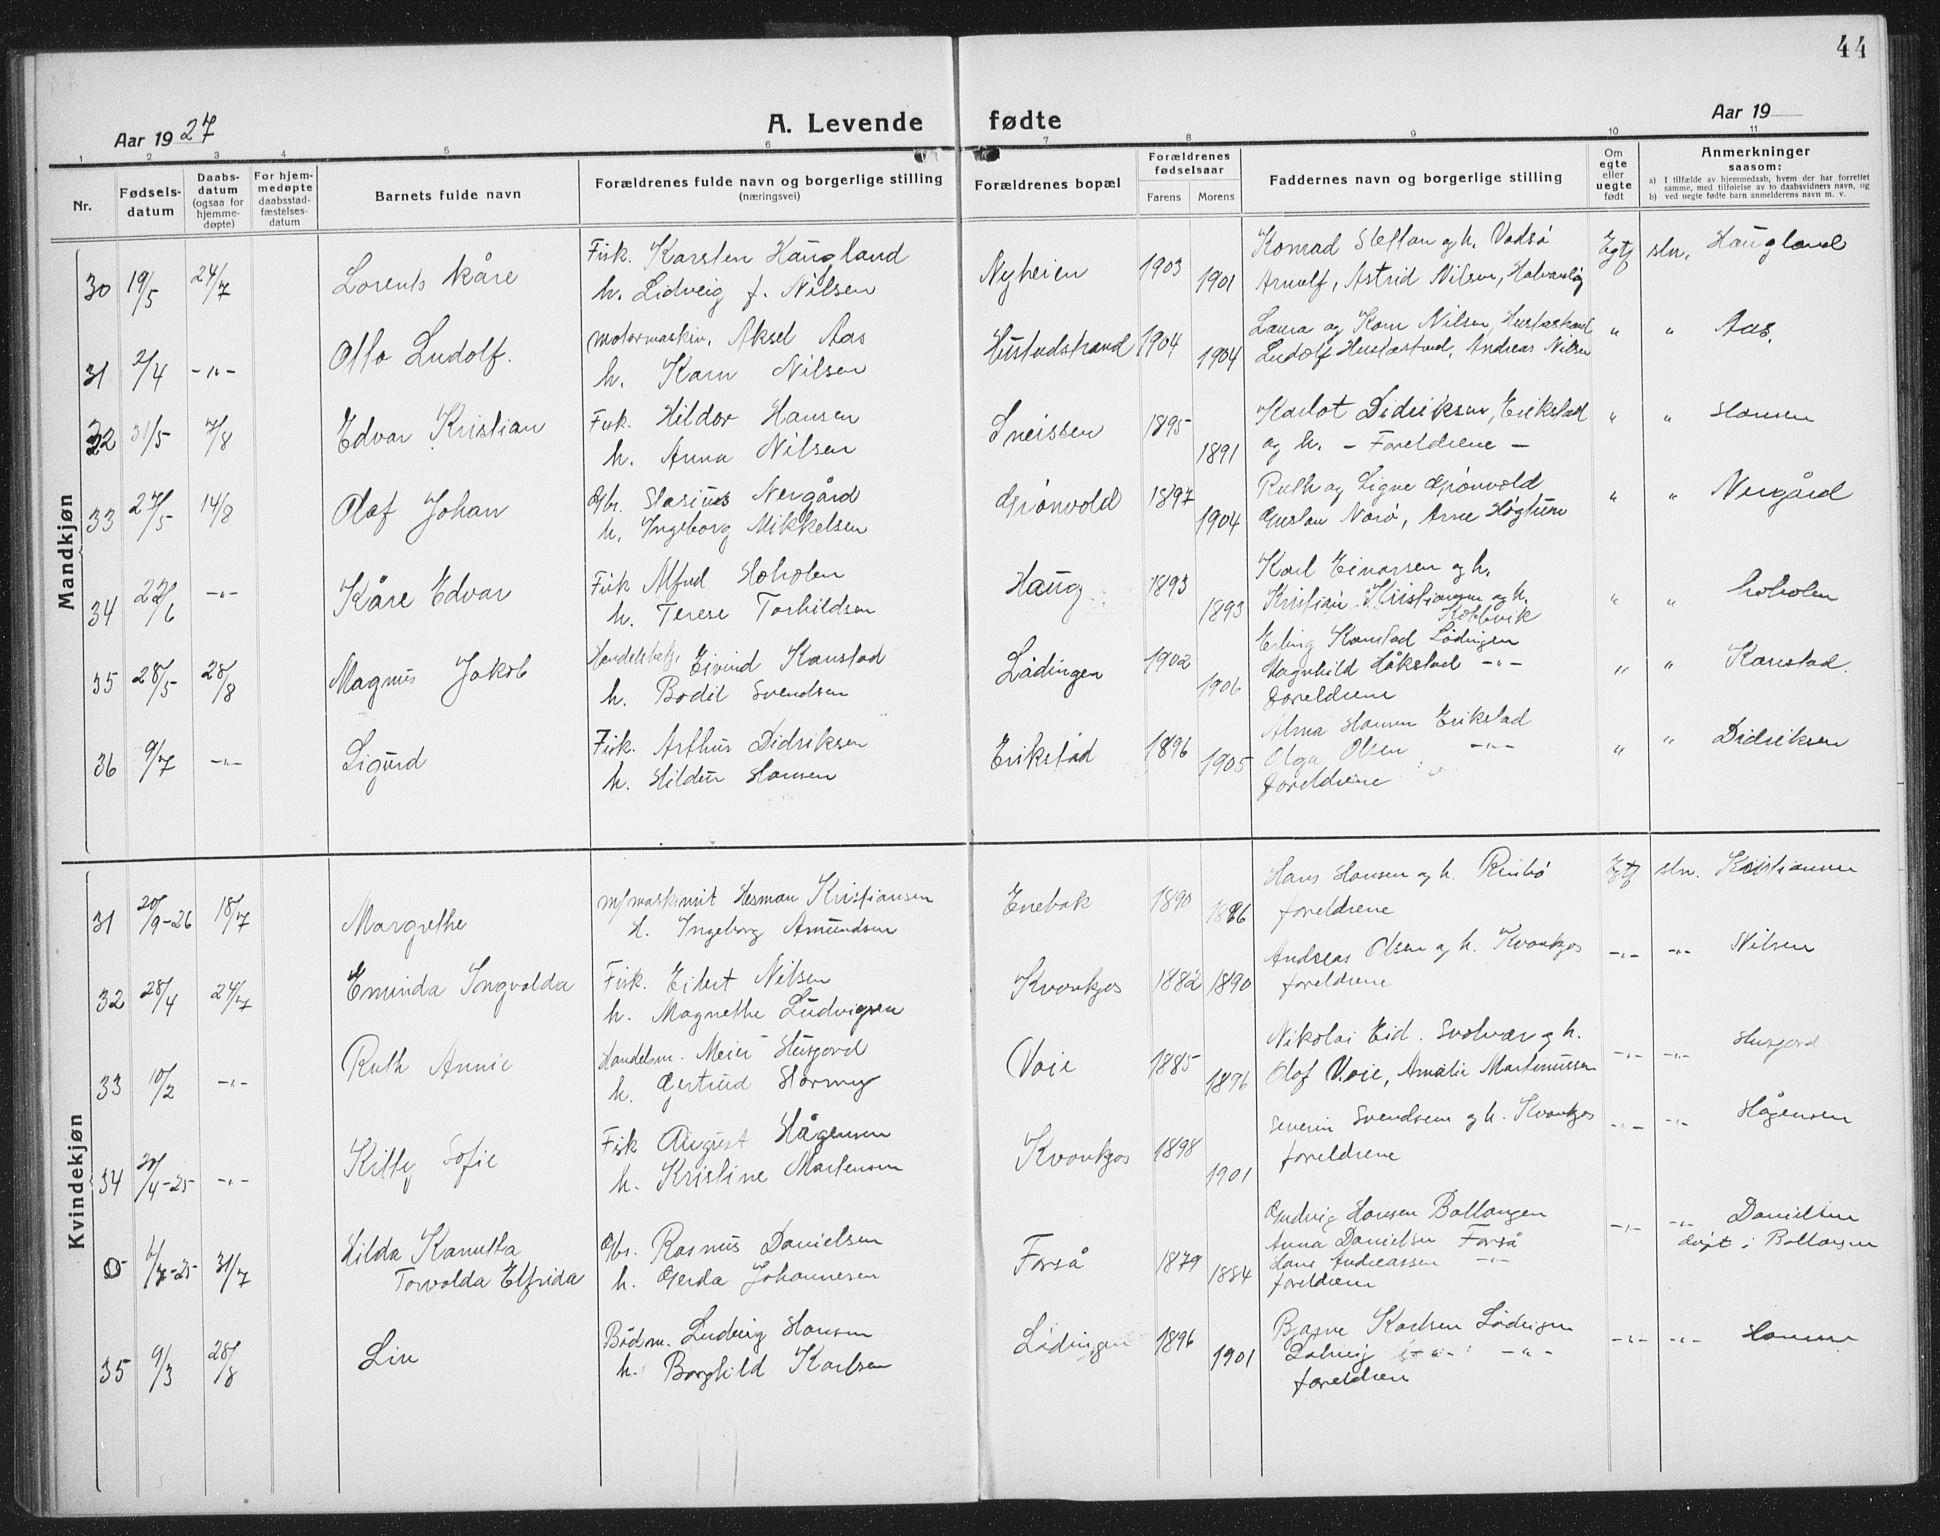 44
Aar 1927
A. Levende fødte
Aar 19
1 2 3 4 5 6 7 8 9 10 11
Nr.
Fødsels-
datum
Daabs-
datum
(ogsaa for
hjemme-
døpte)
For hjem-
medøpte
daabsstad-
fæstelses-
datum
Barnets fulde navn
Forældrenes fulde navn og borgerlige stilling
(næringsvei)
Forældrenes bopæl
Forældrenes
fødselsaar
Farens Morens
Faddernes navn og borgerlige stilling
Om
egte
eller
uegte
født
Anmerkninger
saasom:
a) I tilfælde av hjemmedaab, hvem der har forrettet
samme, med tilføielse av to daabsvidners navn, og
b) ved uegte fødte barn anmelderens navn m. v.
Mandkjøn
30 19/5 24/7 Lorents Kåre
Fisk. Karsten Haugland
h. Lidveig f. Nilsen
Nyheien 1903 1901
Konrad Steffan og h. Vadsø
Arnulf, Astrid Nilsen,
Egtf sln. Haugland
31 2/4 -"- Otto Ludolf.
Motormaskin. Aksel Aas
h. Karn Nilsen
Hustadstrand 1904 1904
Laura og Karn Nilsen, Hustadstrand
Ludolf Hustadstrand, Andreas Nilsen
" " Aas.
32 31/5 7/8 Edvar Kristian
Fisk. Hildor Hansen
h. Anna Nilsen
Sneisen 1895 1891
Karlot Didriksen, Erikstad
og h. - Foreldrene -
" " Hansen
33 27/5 14/8 Olaf Johan
Gbr. Nergård
h. Ingeborg Mikkelsen
Grønvold 1897 1904
Ruth og Signe Grønvold
Gustav Norø, Arne Høgtun
" " Nergård
34 22/6 -"- Kåre Edvar
Fisk Alfred Hoholen
h. Terese Torhildsen
Haug 1893 1893
Karl Einarsen og h.
Kristian Kristiansen og h.
Kobbvik
" " Hoholen
35 28/5 28/8 Magnus Jakob
Eivind Kanstad
h. Bodil Svendsen
Lødingen 1902 1906
Erling Kanstad Lødingen
Magnhild Håkstad -"-
foreldrene
" " Kanstad.
36 9/7 -"- Sigurd
Fisk. Arthur Didriksen
h. Hildur Hansen
Erikstad 1896 1905
Alma Hansen Erikstad
Olga Olsen -"-
foreldrene
" " Didriksen
Kvindekjøn
31 20/9-26 18/7 Margrethe
Herman Kristiansen
H. Ingeborg Amundsen
Enebak 1890 1886
Hans Hansen og h. Rinbø
foreldrene
Egtf sln. Kristiansen
32 28/4 24/7 Eminda Ingvalda
Fisk. Eilert Nilsen
h. Magnethe Ludvigsen
Kvankjos 1882 1890
Andreas Olsen og h. Kvankjos
foreldrene
-"- -"- Nilsen
33 10/2 -"- Ruth Annie
Handelsm. Meier Husjord
h. Gertrud Hormy
Voie 1885 1896
Nikolai Eid. Svolvær og h.
Olaf Voie, Amalie Martinussen
-"- -"- Husjord
34 20/4-25 -"- Kitty Sofie
Fisk August Hågensen
h. Kristine Martensen
Kvankjos 1898 1901
Severin Svendsen og h. Kvankjos
foreldrene
-"- -"- Hågensen
0 6/7-25 31/7 Hilda Kanutta
Torvalda Elfrida
Gbr. Rasmus Danielsen
h. Gerda Johannesen
Forså 1879 1884
Gudvig Hansen Ballangen
Anna Danielsen Forså
Hans Andreassen -"-
foreldrene
-"- -"- Danielsen
døpt i Ballangen
35 9/3 28/8 Liv
Bådsm. Ludvig Hansen
h. Borghild Karlsen
Lødingen 1896 1901
Bjarne Karlsen Lødingen
Solveig -"- -"-
foreldrene
-"- -"- Hansen